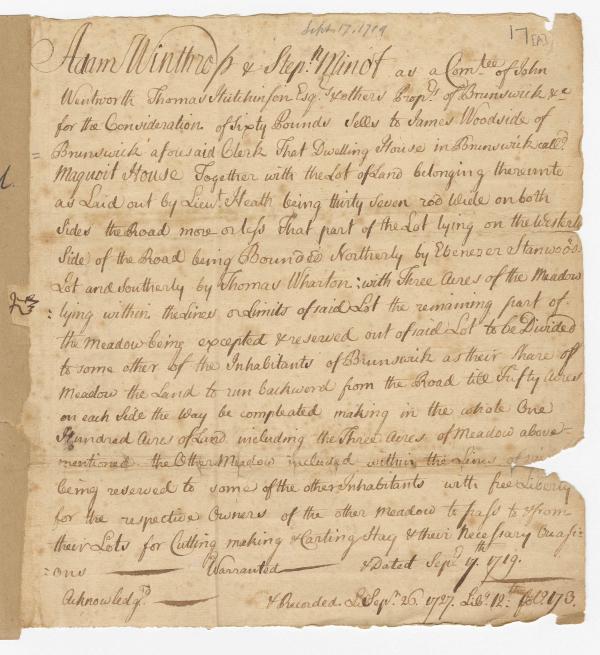 Sept. 17. 1719
17 [EA]
Adam Winthrop & Stepn Minot as a Comtee of John
Wentworth Thomas Hutchinson Esqrs & others Proprs of Brunswick &c
for the Consideration of Sixty Pounds Sells to James Woodside of
Brunswick aforesaid Clerk That Dwelling House in Brunswick calld
Maquoit House Together with the Lot of Land belonging thereunto
as Laid out by Lieut Heath being thirty seven rod wide on both
Sides the Road more or less That part of the Lot lying on the Westerly
Side of the Road being Bounded Northerly by Ebenezer Stanwoods
Lot and Southerly by Thomas Wharton: with Three Acres of the Meadow
lying within the Lines or Limits of said Lot the remaining part of
the Meadow being excepted & reserved out of said Lot to be Divided
to some other of the Inhabitants of Brunswick as their Share of
Meadow the Land to run backword from the Road till Fifty Acres
on each Side the Way be compleated making in the whole One
Hundred Acres of Land including the Three Acres of Meadow above-
mentioned the Other Meadow included within the Lines of
being reserved to some of the other Inhabitants with free Liberty
for the respective Owners of the other Meadow to pass to & from
their Lots for Cutting making & Carting Hay & their Necessary Occasi-
=ons — Warranted — & Dated Sepr 17th 1719.
Acknowledgd — & Recorded Sepr 26. 1727. Libo 12th folo 173.